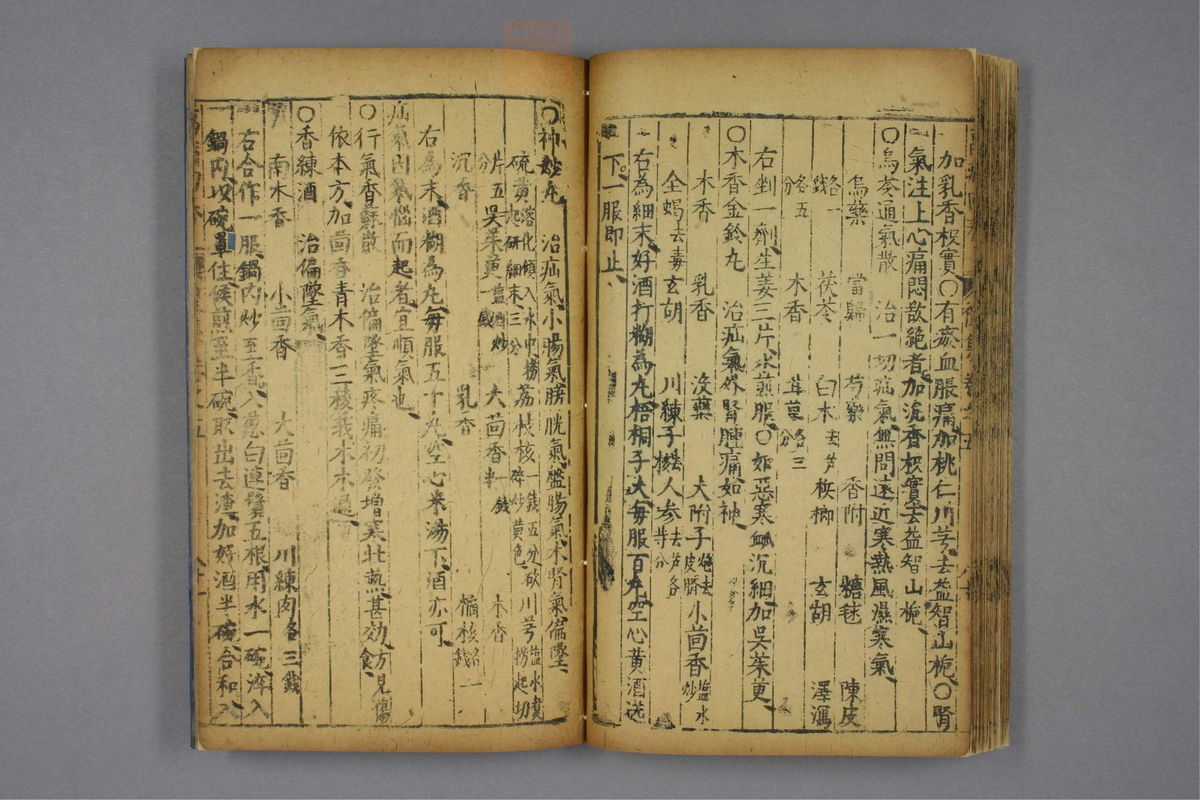 加乳香枳實○有瘀血脹痛加桃仁川芎去益智山梔○腎
氣注上心痛悶欲絕者加沉香枳實去益智山梔
○烏苓通氣散 治一切疝氣無問遠近寒熱風濕寒氣
烏藥 當歸 芍藥 香附 糖毬 陳皮
各一錢 茯苓 白朮去芦 梹榔 玄胡 澤瀉
各五分 木香 各三分
右剉一劑生姜三片水煎服○如惡寒脈沉細加吳茱萸
○木香金鈴丸 治疝氣外腎腫痛如神
木香 乳香 沒藥 大附子炮去皮臍 小茴香塩水炒
全蝎去毒 玄胡 川練子去核 人参去芦各等分
右為細末好酒打糊為丸梧桐子大每服百丸空心黃酒送
下一服即止
○神妙丸 治疝氣小腸氣膀胱氣盤腸氣木腎氣偏墜
硫黃溶化傾入水中撈起研細末三分 荔枝核一錢五分砍碎炒黃色 川芎塩水煮撈起切
片五分 吳茱萸塩酒炒 大茴香一錢半 木香
沉香 乳香 橘核各一錢
右為末酒糊為丸每服五十丸空心米湯下酒亦可
疝氣因氣惱而起者宜順氣也
○行氣香蘇散 治偏墜氣疼痛初發增寒壯熱甚効方見傷食
依本方加茴香青木香三稜我朮木通
○香練酒 治偏墜氣
南木香 小茴香 大茴香 川練肉各三錢
右合作一服鍋內炒至香入葱白連鬚五根用水一碗淬入
鍋內以碗罩住候煎至半碗取出去渣加好酒半碗合和入